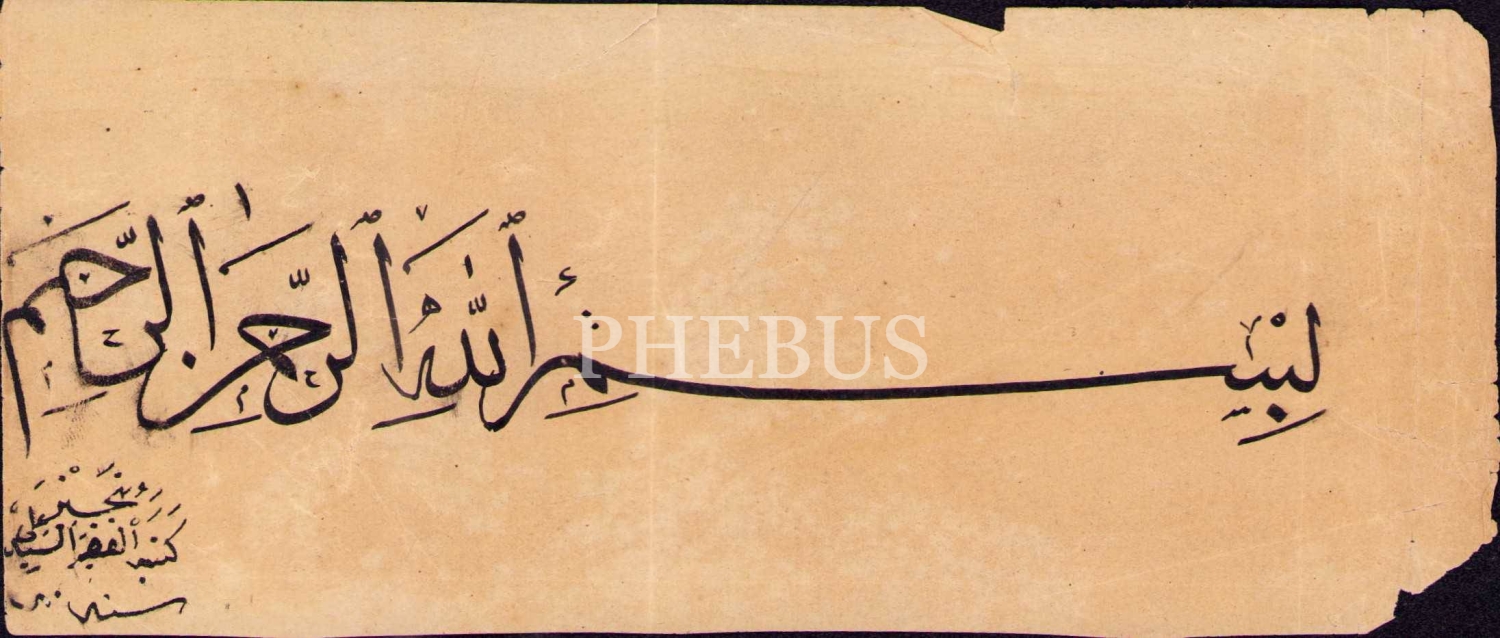 بِسْمِ اللّٰهِ الرَّحْمٰنِ الرَّحِيمِ
PHEBUS
كتبه الفقير السيد
سنه